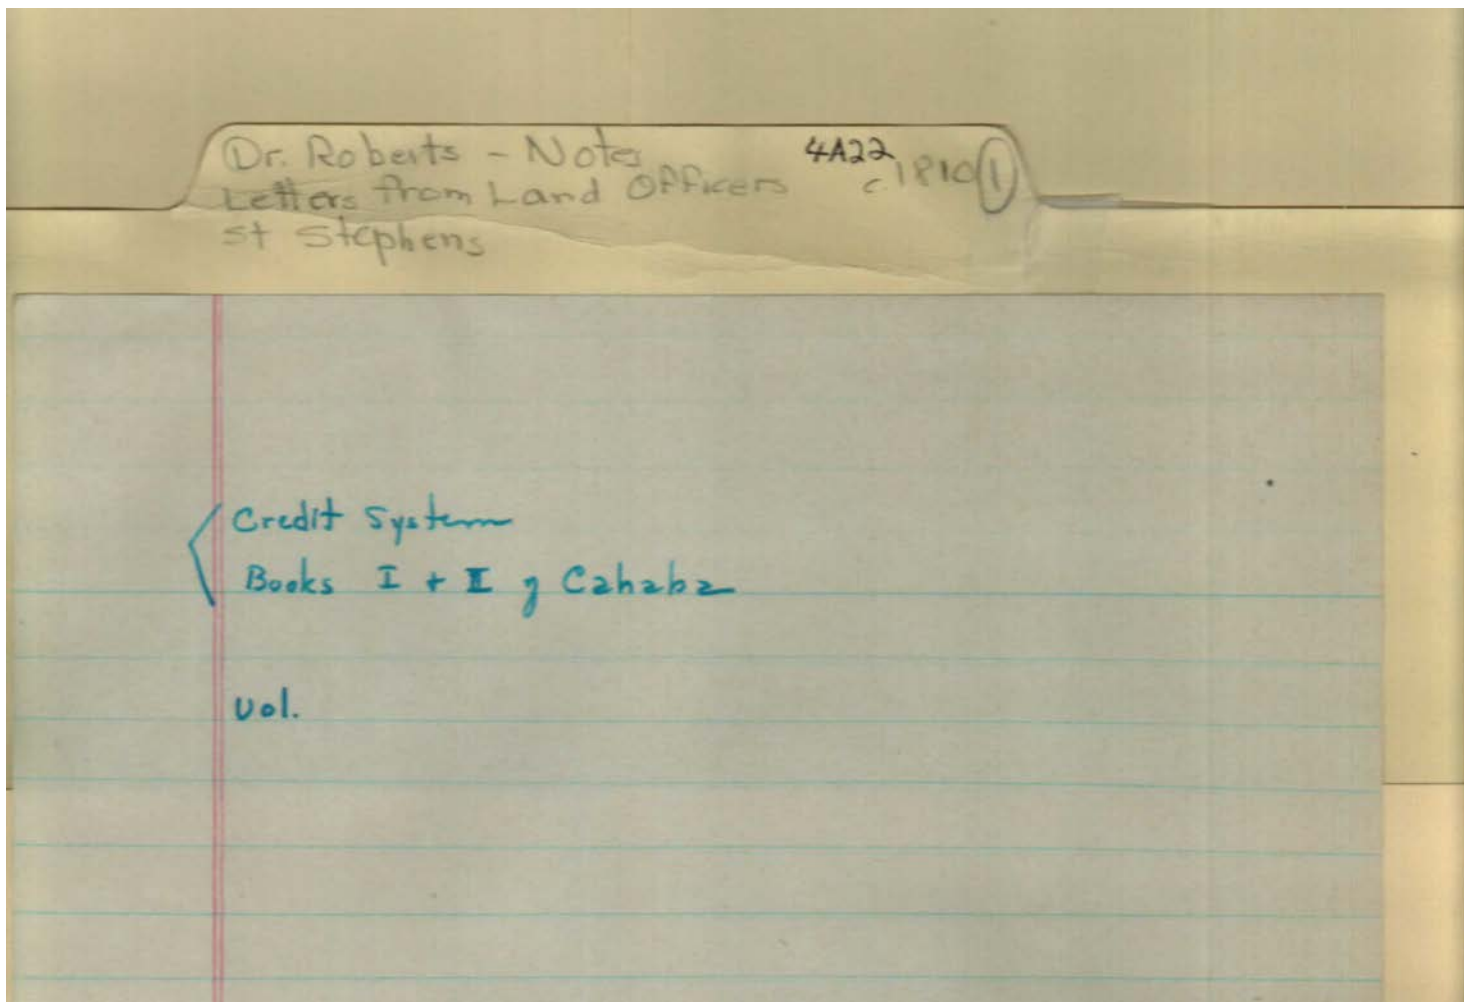 Dr. Roberts - Notes 4A22
Letters from Land Officers c 1810 1
St Stephens
Credit System
Books I + II of Cahaba
Vol.